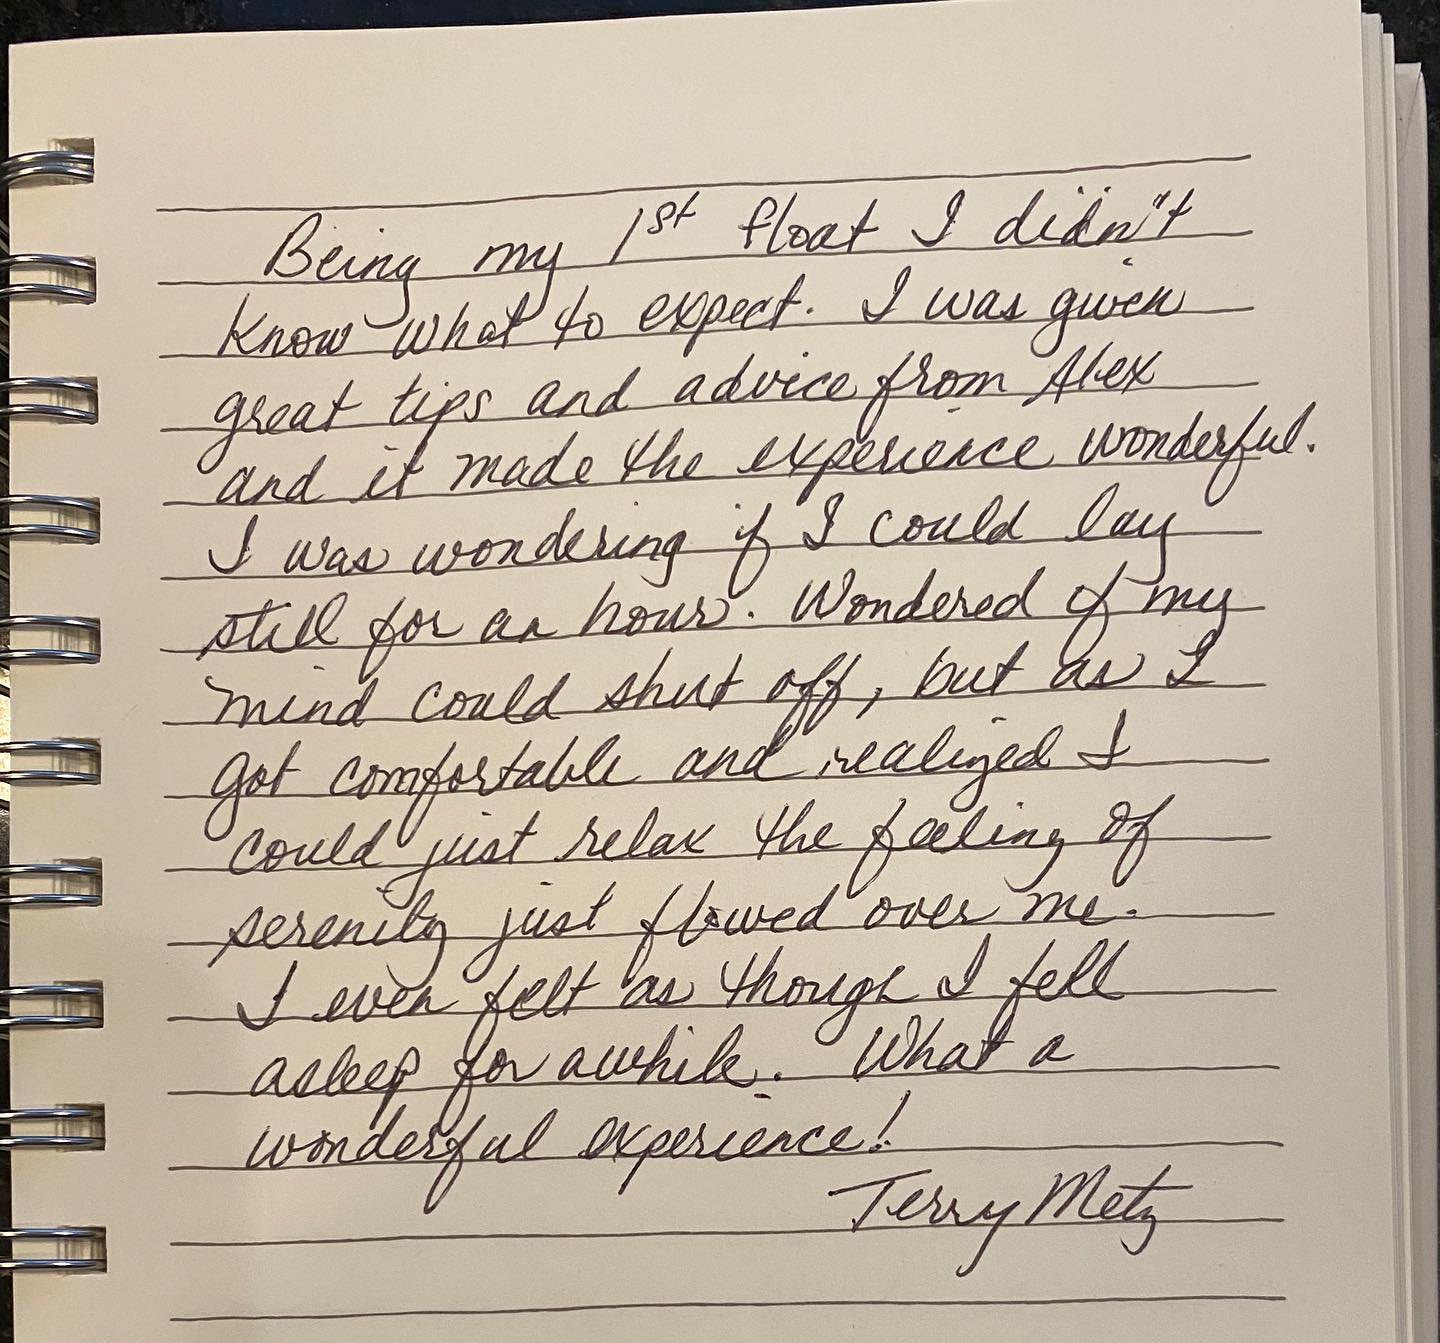 Being my 1st float I didn't
know what to expect. I was given
great tips and advice from Alex
and it made the experience wonderful.
I was wondering if I could lay
still for an hour. Wondered if my
mind could shut off, but as I
got comfortable and realized I
could just relax the feeling of
serenity just flowed over me.
I even felt as though I fell
asleep for awhile. What a
wonderful experience!
Terry Metz